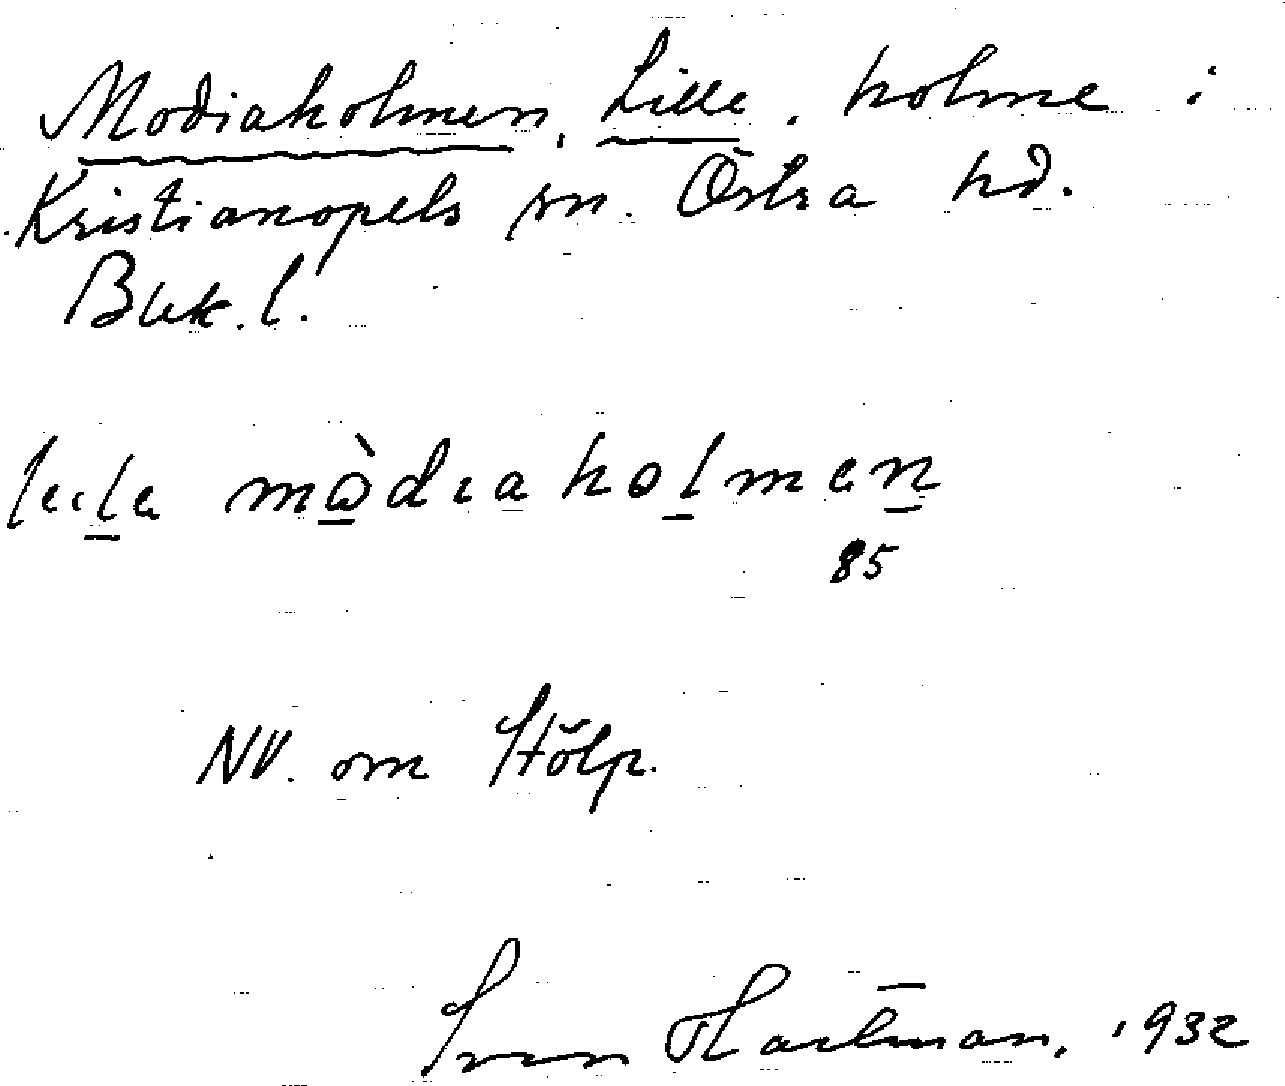 Modiaholmen, Lille. holme i
Kristianopels sn. Östra hd.
Blek. l.
mòdıaholmen
85
NV. om Stölp.
Sven Hartman, 1932